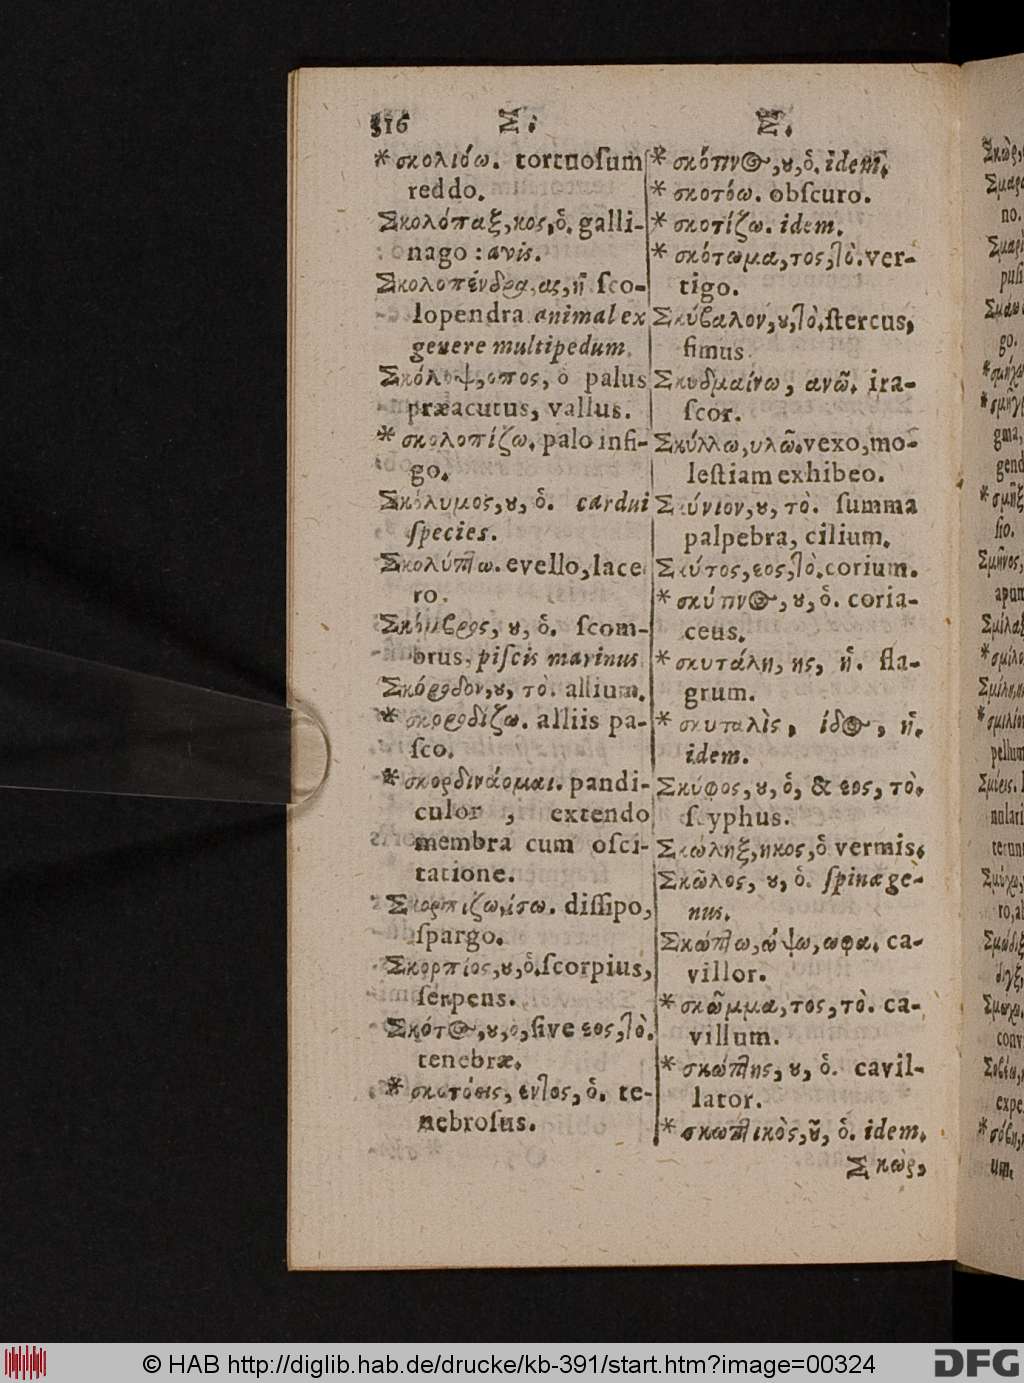 316 Σ. Σ.
* σκολιόω. tortuoſum
reddo.
Σκολόπαξ, κος, ὁ. galli-
nago : avis.
Σκολοπένδρα, ας, ἡ ſco-
lopendra animal ex
genere multipedum.
Σκόλοψ, οπος, ὁ palus
præacutus, vallus.
* σκολοπίζω. palo infi-
go.
Σκόλυμος, ȣ, ὁ. cardui
ſpecies.
Σκολύπτω. evello, lace
ro.
Σκόμβρος, ȣ, ὁ. ſcom-
brus. piſcis marinus
Σκόροδον, ȣ, τὸ. allium.
* σκοροδίζω. alliis pa-
ſco.
* σκορδινάομαι. pandi-
culor , extendo
membra cum oſci-
tatione.
Σκορπίζω, ίσω. diſſipo,
ſpargo.
Σκορπίος, ȣ, ὁ. ſcorpius,
ſerpens.
Σκότος, ȣ, ὁ, ſive εος, τὸ.
tenebræ.
* σκοτόεις, εντος, ὁ. te-
nebroſus.
* σκότινος, ȣ, ὁ. idem.
* σκοτόω. obſcuro.
* σκοτίζω. idem.
* σκότωμα, τος, τὸ. ver-
tigo.
Σκύβαλον, ȣ, τὸ. ſtercus,
fimus
Σκυδμαίνω, ανῶ. ira-
ſcor.
Σκύλλω, υλῶ. vexo, mo-
leſtiam exhibeo.
Σκύνιον, ȣ, τὸ. ſumma
palpebra, cilium.
Σκύτος, εος, τὸ. corium.
* σκύτινος, ȣ, ὁ. coria-
ceus.
* σκυτάλη, ης, ἡ. fla-
grum.
* σκυταλὶς, ίδος, ἡ.
idem.
Σκύφος, ȣ, ὁ, & εος, τὸ.
ſcyphus.
Σκώληξ, ηκος, ὁ vermis.
Σκῶλος, ȣ, ὁ. ſpinæ ge-
nus.
Σκώπτω, ώψω, ωφα. ca-
villor.
* σκῶμμα, τος, τὸ. ca-
villum.
* σκώπτης, ȣ, ὁ. cavil-
lator.
* σκωπτικὸς, ȣ͂, ὁ. idem.
Σκὼρ,
© HAB http://diglib.hab.de/drucke/kb-391/start.htm?image=00324
DFG